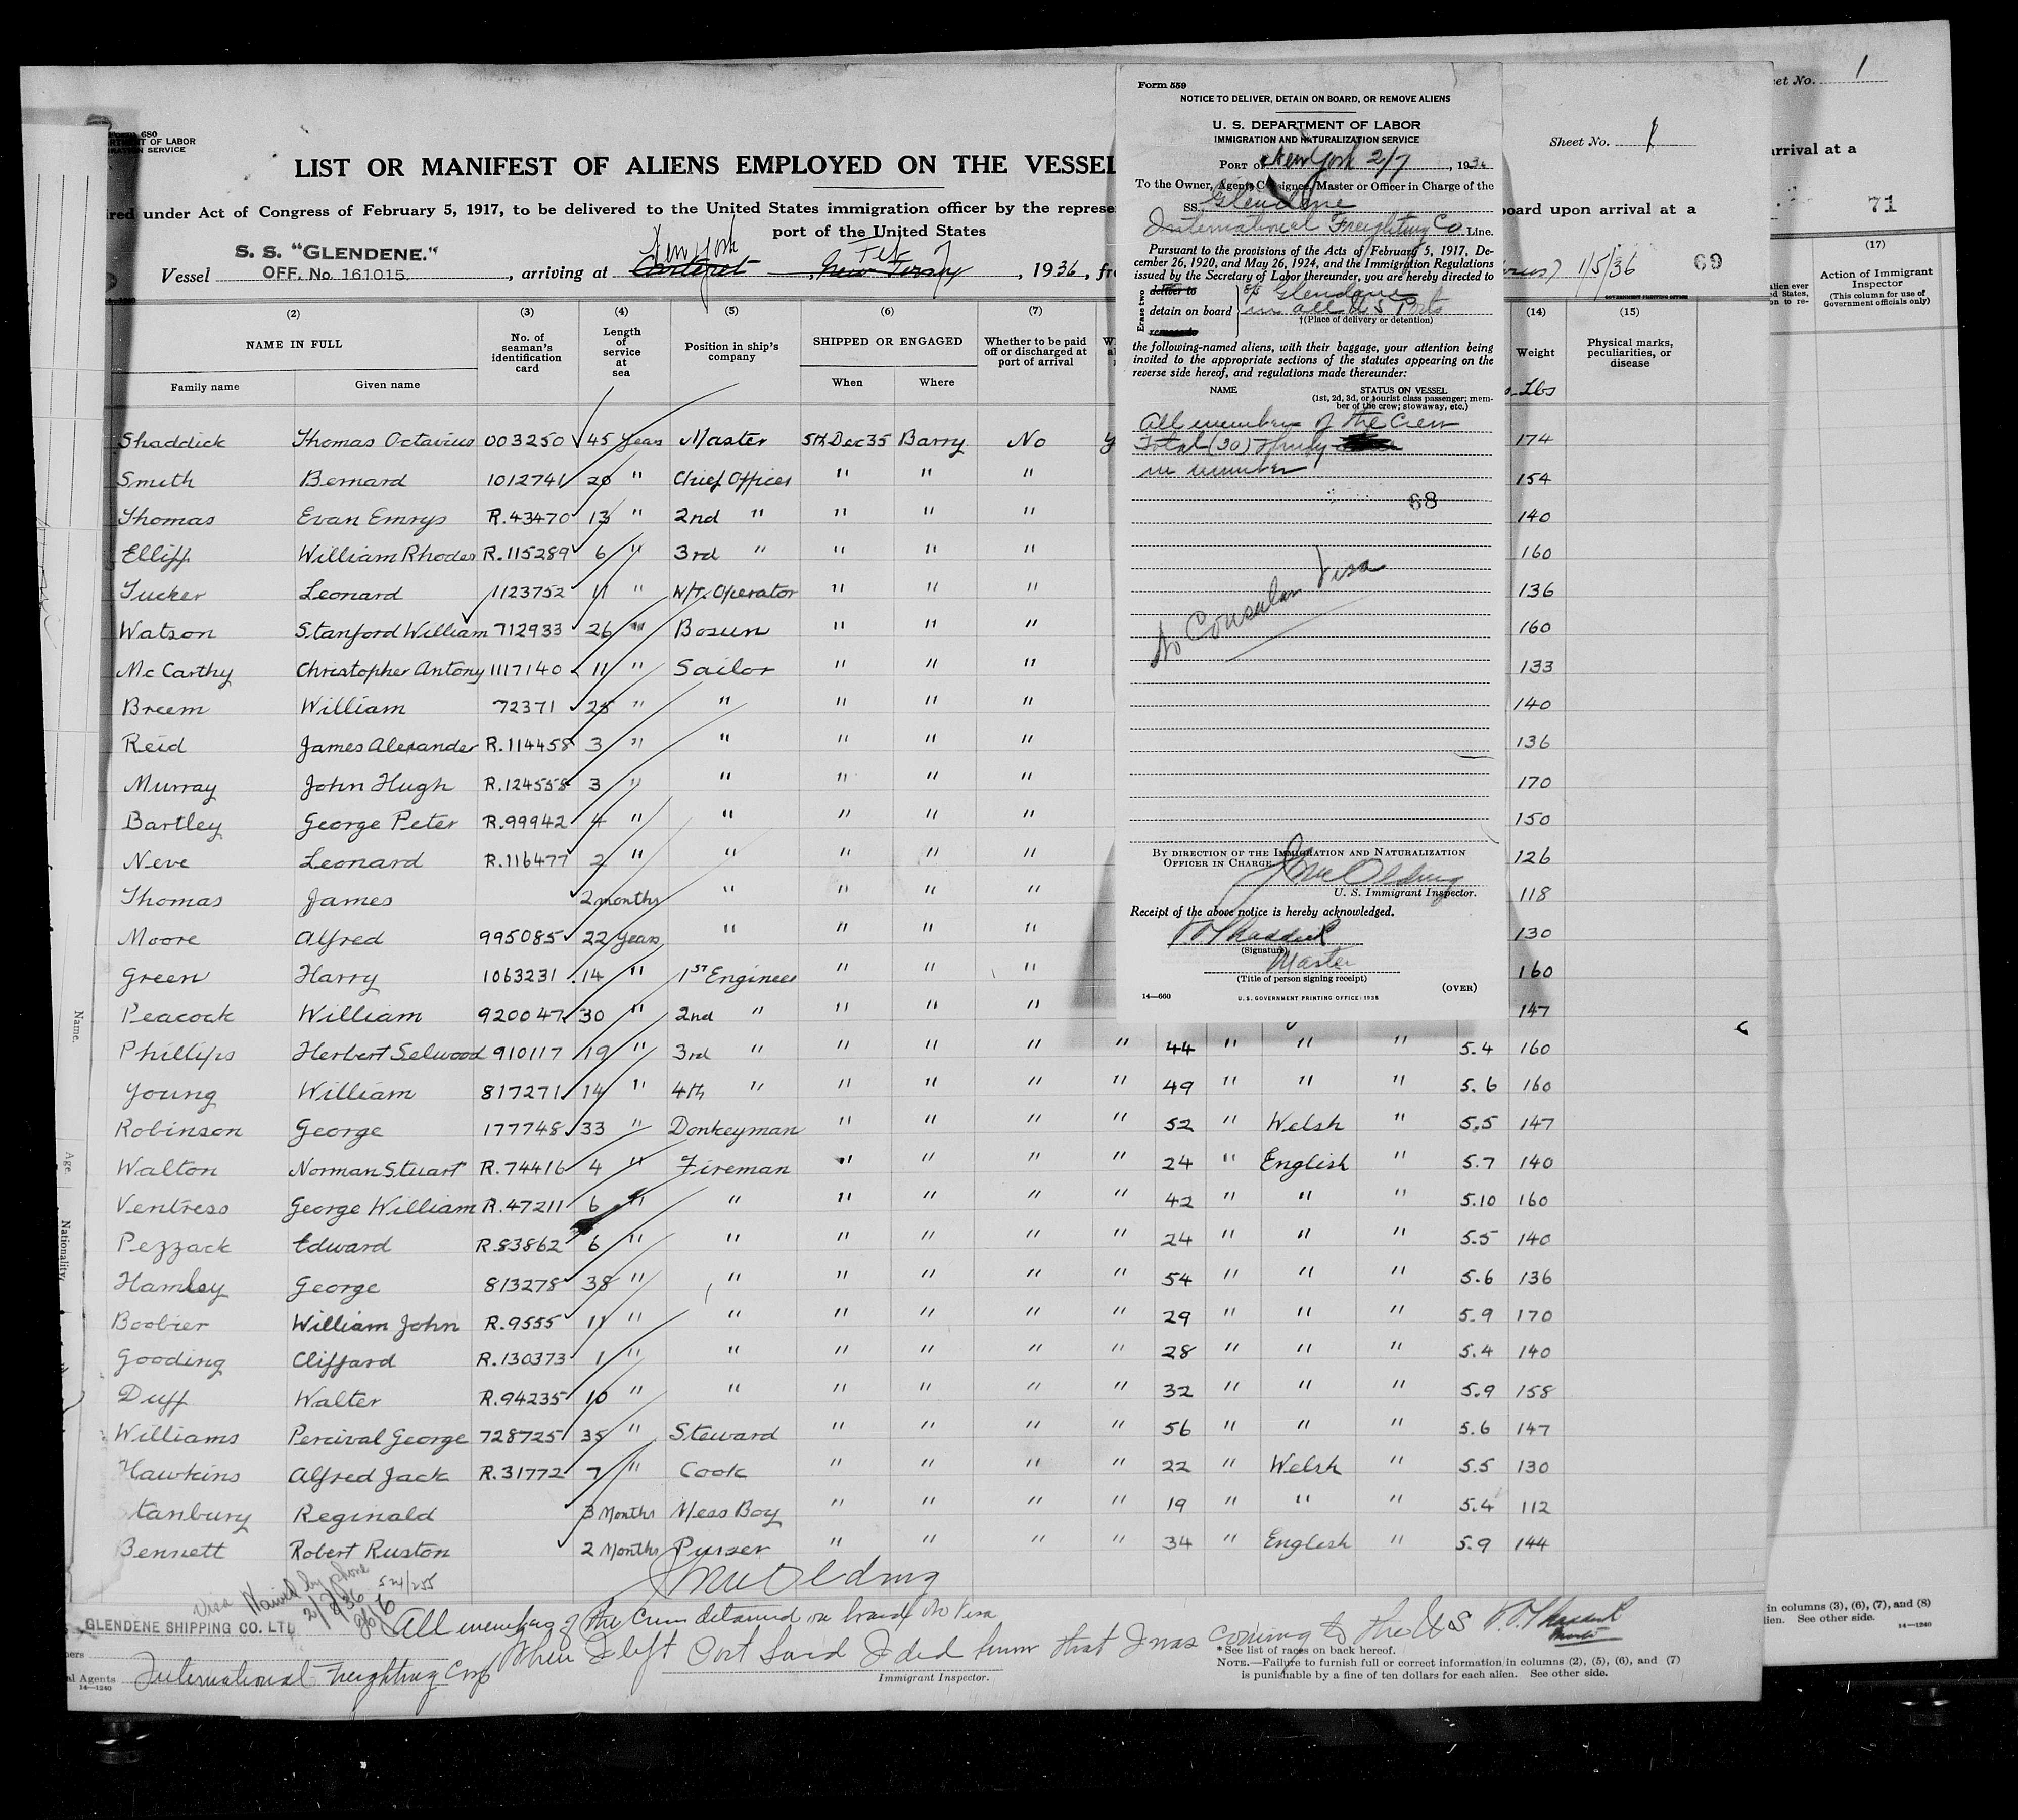 Sheet No. 1
arrival at a
71
(17)
Action of Immigrant Inspector
(This column for use of Government officials only)
Form 680
DEPARTMENT OF LABOR
IMMIGRATION SERVICE
Sheet No. 1
LIST OR MANIFEST OF ALIENS EMPLOYED ON THE VESSEL
under Act of Congress of February 5, 1917, to be delivered to the United States immigration officer by the
board upon arrival at a
port of the United States
New York Feb
Vessel S. S. "GLENDENE." OFF. No. 161015, arriving at Carteret, New Jersey, 1936,
1/5/36 69
(2) (3) (4) (5) (6) (7) (14) (15)
NAME IN FULL No. of seaman's identification card Length of service at sea Position in ship's company SHIPPED OR ENGAGED Whether to be paid off or discharged at port of arrival Weight Physical marks, peculiarities, or disease
Family name Given name When Where Lbs
Shaddick Thomas Octavius 003250 45 Years Master 5th Dec 35 Barry No 174
Smith Bernard 1012741 20 " Chief Officer " " " 154
Thomas Evan Emrys R.43470 13 " 2nd " " " " 140
Elliff William Rhodes R.115289 6 " 3rd " " " " 160
Tucker Leonard 1123752 11 " W/T. Operator " " " 136
Watson Stanford William 712933 26 " Bosun " " " 160
McCarthy Christopher Antony 1117140 11 " Sailor " " " 133
Breem William 72371 25 " " " " " 140
Reid James Alexander R.114458 3 " " " " " 136
Murray John Hugh R.124558 3 " " " " " 170
Bartley George Peter R.99942 4 " " " " " 150
Neve Leonard R.116477 2 " " " " " 126
Thomas James 2 months " " " " 118
Moore Alfred 995085 22 Years " " " " 130
Green Harry 1063231 14 " 1st Engineer " " " 160
Peacock William 920047 30 " 2nd " " " " 147
Phillips Herbert Selwood 910117 19 " 3rd " " " " " 44 " " " 5.4 160
Young William 817271 14 " 4th " " " " " 49 " " " 5.6 160
Robinson George 177748 33 " Donkeyman " " " " 52 " Welsh " 5.5 147
Walton Norman Stuart R.74416 4 " Fireman " " " " 24 " English " 5.7 140
Ventress George William R.47211 6 " " " " " " 42 " " " 5.10 160
Pezzack Edward R.83862 6 " " " " " " 24 " " " 5.5 140
Hamley George 813278 38 " " " " " " 54 " " " 5.6 136
Boobier William John R.9555 11 " " " " " " 29 " " " 5.9 170
Gooding Cliffard R.130373 1 " " " " " " 28 " " " 5.4 140
Duff Walter R.94235 10 " " " " " " 32 " " " 5.9 158
Williams Percival George 728725 35 " Steward " " " " 56 " " " 5.6 147
Hawkins Alfred Jack R.31772 7 " Cook " " " " 22 " Welsh " 5.5 130
Stanbury Reginald 3 Months Mess Boy " " " " 19 " " " 5.4 112
Bennett Robert Ruston 2 Months Purser " " " " 34 " English " 5.9 144
Visa Waived by phone
2/8/36
GLENDENE SHIPPING CO. LTD
All members of the Crew detained on board No Visa
When I left Port Said I did know that I was coming to the U S T. O. Shaddick
Master
International Freighting Corp
Agents
14—1240
Immigrant Inspector.
*See list of races on back hereof.
NOTE.—Failure to furnish full or correct information in columns (2), (5), (6), and (7)
is punishable by a fine of ten dollars for each alien. See other side.
in columns (3), (6), (7), and (8)
alien. See other side.
14—1240
Name.
Age.
Nationality.
Form 559
NOTICE TO DELIVER, DETAIN ON BOARD, OR REMOVE ALIENS
U. S. DEPARTMENT OF LABOR
IMMIGRATION AND NATURALIZATION SERVICE
PORT OF New York 2/7, 1936
To the Owner, Agent, Consignee, Master or Officer in Charge of the
SS. Glendene
International Freighting Co Line.
Pursuant to the provisions of the Acts of February 5, 1917, De-
cember 26, 1920, and May 26, 1924, and the Immigration Regulations
issued by the Secretary of Labor thereunder, you are hereby directed to
Erase two
deliver to
detain on board
remove to
S/S Glendene
in all U S Ports
†(Place of delivery or detention)
the following-named aliens, with their baggage, your attention being
invited to the appropriate sections of the statutes appearing on the
reverse side hereof, and regulations made thereunder:
NAME STATUS ON VESSEL
(1st, 2d, 3d, or tourist class passenger; mem-
ber of the crew; stowaway, etc.)
All members of the Crew
Total (30) Thirty
in number
68
No Consular Visa
BY DIRECTION OF THE IMMIGRATION AND NATURALIZATION
OFFICER IN CHARGE:
U. S. Immigrant Inspector.
Receipt of the above notice is hereby acknowledged.
T. O. Shaddick
(Signature)
Master
(Title of person signing receipt)
(OVER)
14—660 U. S. GOVERNMENT PRINTING OFFICE: 1935